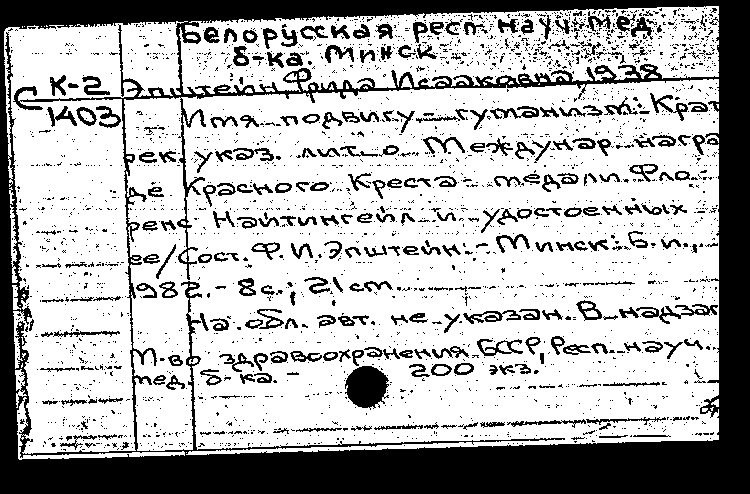 Белорусская респ. науч. мед.
б-ка. Минск
К-2 Эпштейн, Фрида Исааковна, 1938
1403 Имя подвигу - гуманизм: Крат
рек. указ. лит. о Междунар. награ
де Красного Креста - медали Фло-
ренс Найтингейл и удостоенных
ее/Сост. Ф. И. Эпштейн. - Минск: Б. и.,
1982. - 8 с.; 21 см.
На обл. авт. не указан. В надзаг
М-во здравоохранения БССР, Респ. науч.
мед. б-ка. - 200 экз.